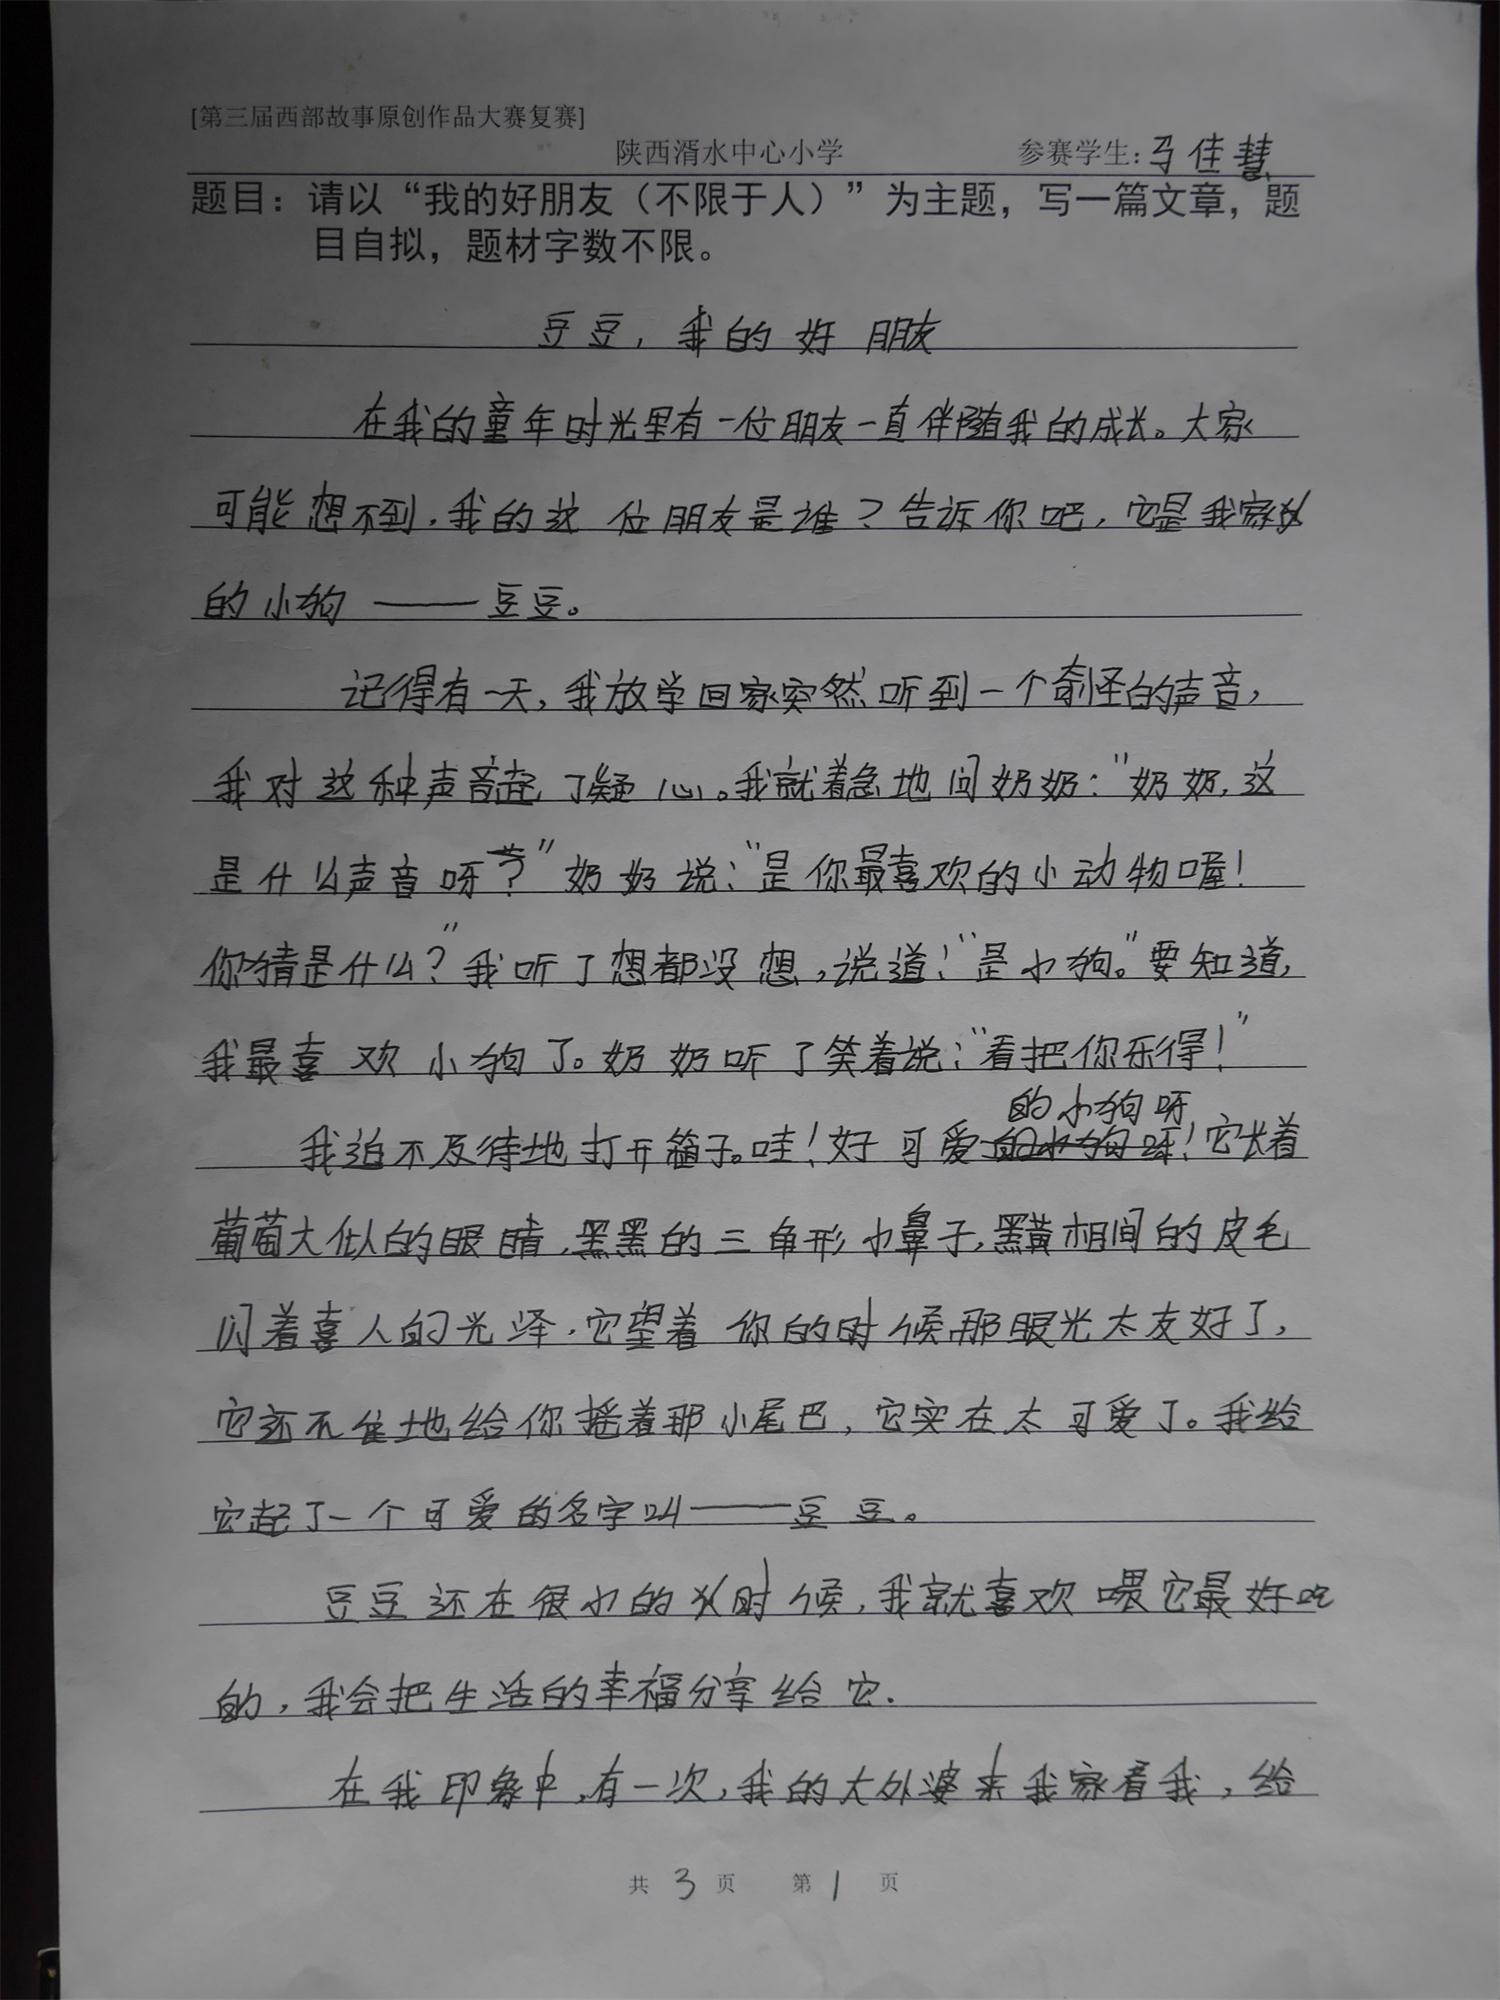 [第三届西部故事原创作品大赛复赛]
陕西湑水中心小学 参赛学生:马佳慧
题目：请以“我的好朋友（不限于人）”为主题，写一篇文章，题
目自拟，题材字数不限。
豆豆，我的好朋友
在我的童年时光里有一位朋友一直伴随我的成长。大家
可能想不到，我的这位朋友是谁？告诉你吧，它是我家
的小狗——豆豆。
记得有一天，我放学回家突然听到一个奇怪的声音，
我对这种声音起了疑心。我就着急地问奶奶：“奶奶，这
是什么声音呀？”奶奶说：“是你最喜欢的小动物喔！
你猜是什么？”我听了想都没想，说道：“是小狗。”要知道，
我最喜欢小狗了。奶奶听了笑着说：“看把你乐得！”
我迫不及待地打开箱子。哇！好可爱的小狗呀！它长着
葡萄大似的眼睛，黑黑的三角形小鼻子，黑黄相间的皮毛
闪着喜人的光泽，它望着你的时候那眼光太友好了，
它还不住地给你摇着那小尾巴，它实在太可爱了。我给
它起了一个可爱的名字叫——豆豆。
豆豆还在很小的时候，我就喜欢喂它最好吃
的，我会把生活的幸福分享给它.
在我印象中，有一次，我的大外婆来我家看我，给
共3页 第1页